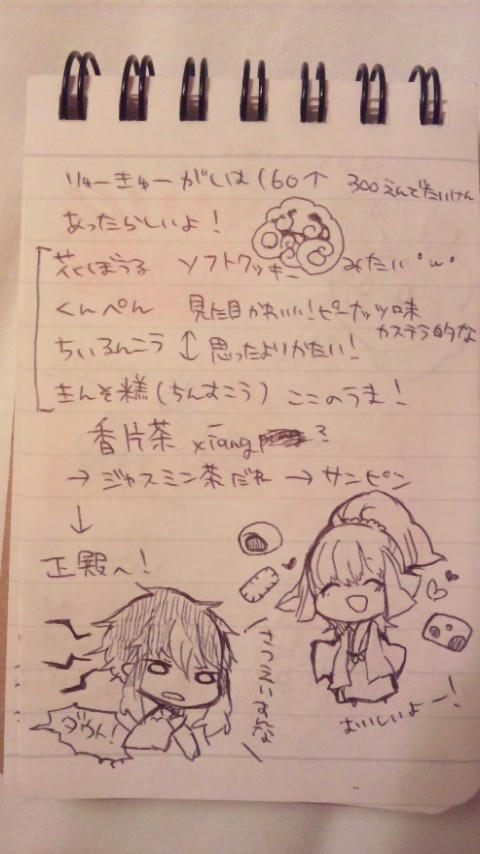 りゅーきゅーがしは(160↑ 300えんでたいけん
あったらしいよ!
花ぼうる ソフトクッキーみたい 'ω'
くんぺん 見た目かわいい!ピーナッツ味
ちいるんこう ↕ 思ったよりかたい! カステラ的な
きんそ糕(ちんすこう) ここのうま!
香片茶 xiang ?
→ ジャスミン茶だね → サンピン
↓
正殿へ!
ダウン!
おいしいよー!